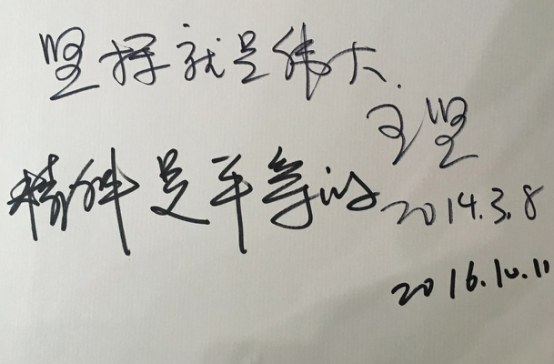 坚持就是伟大.
王坚
2014.3.8
精神是平等的
2016.10.11